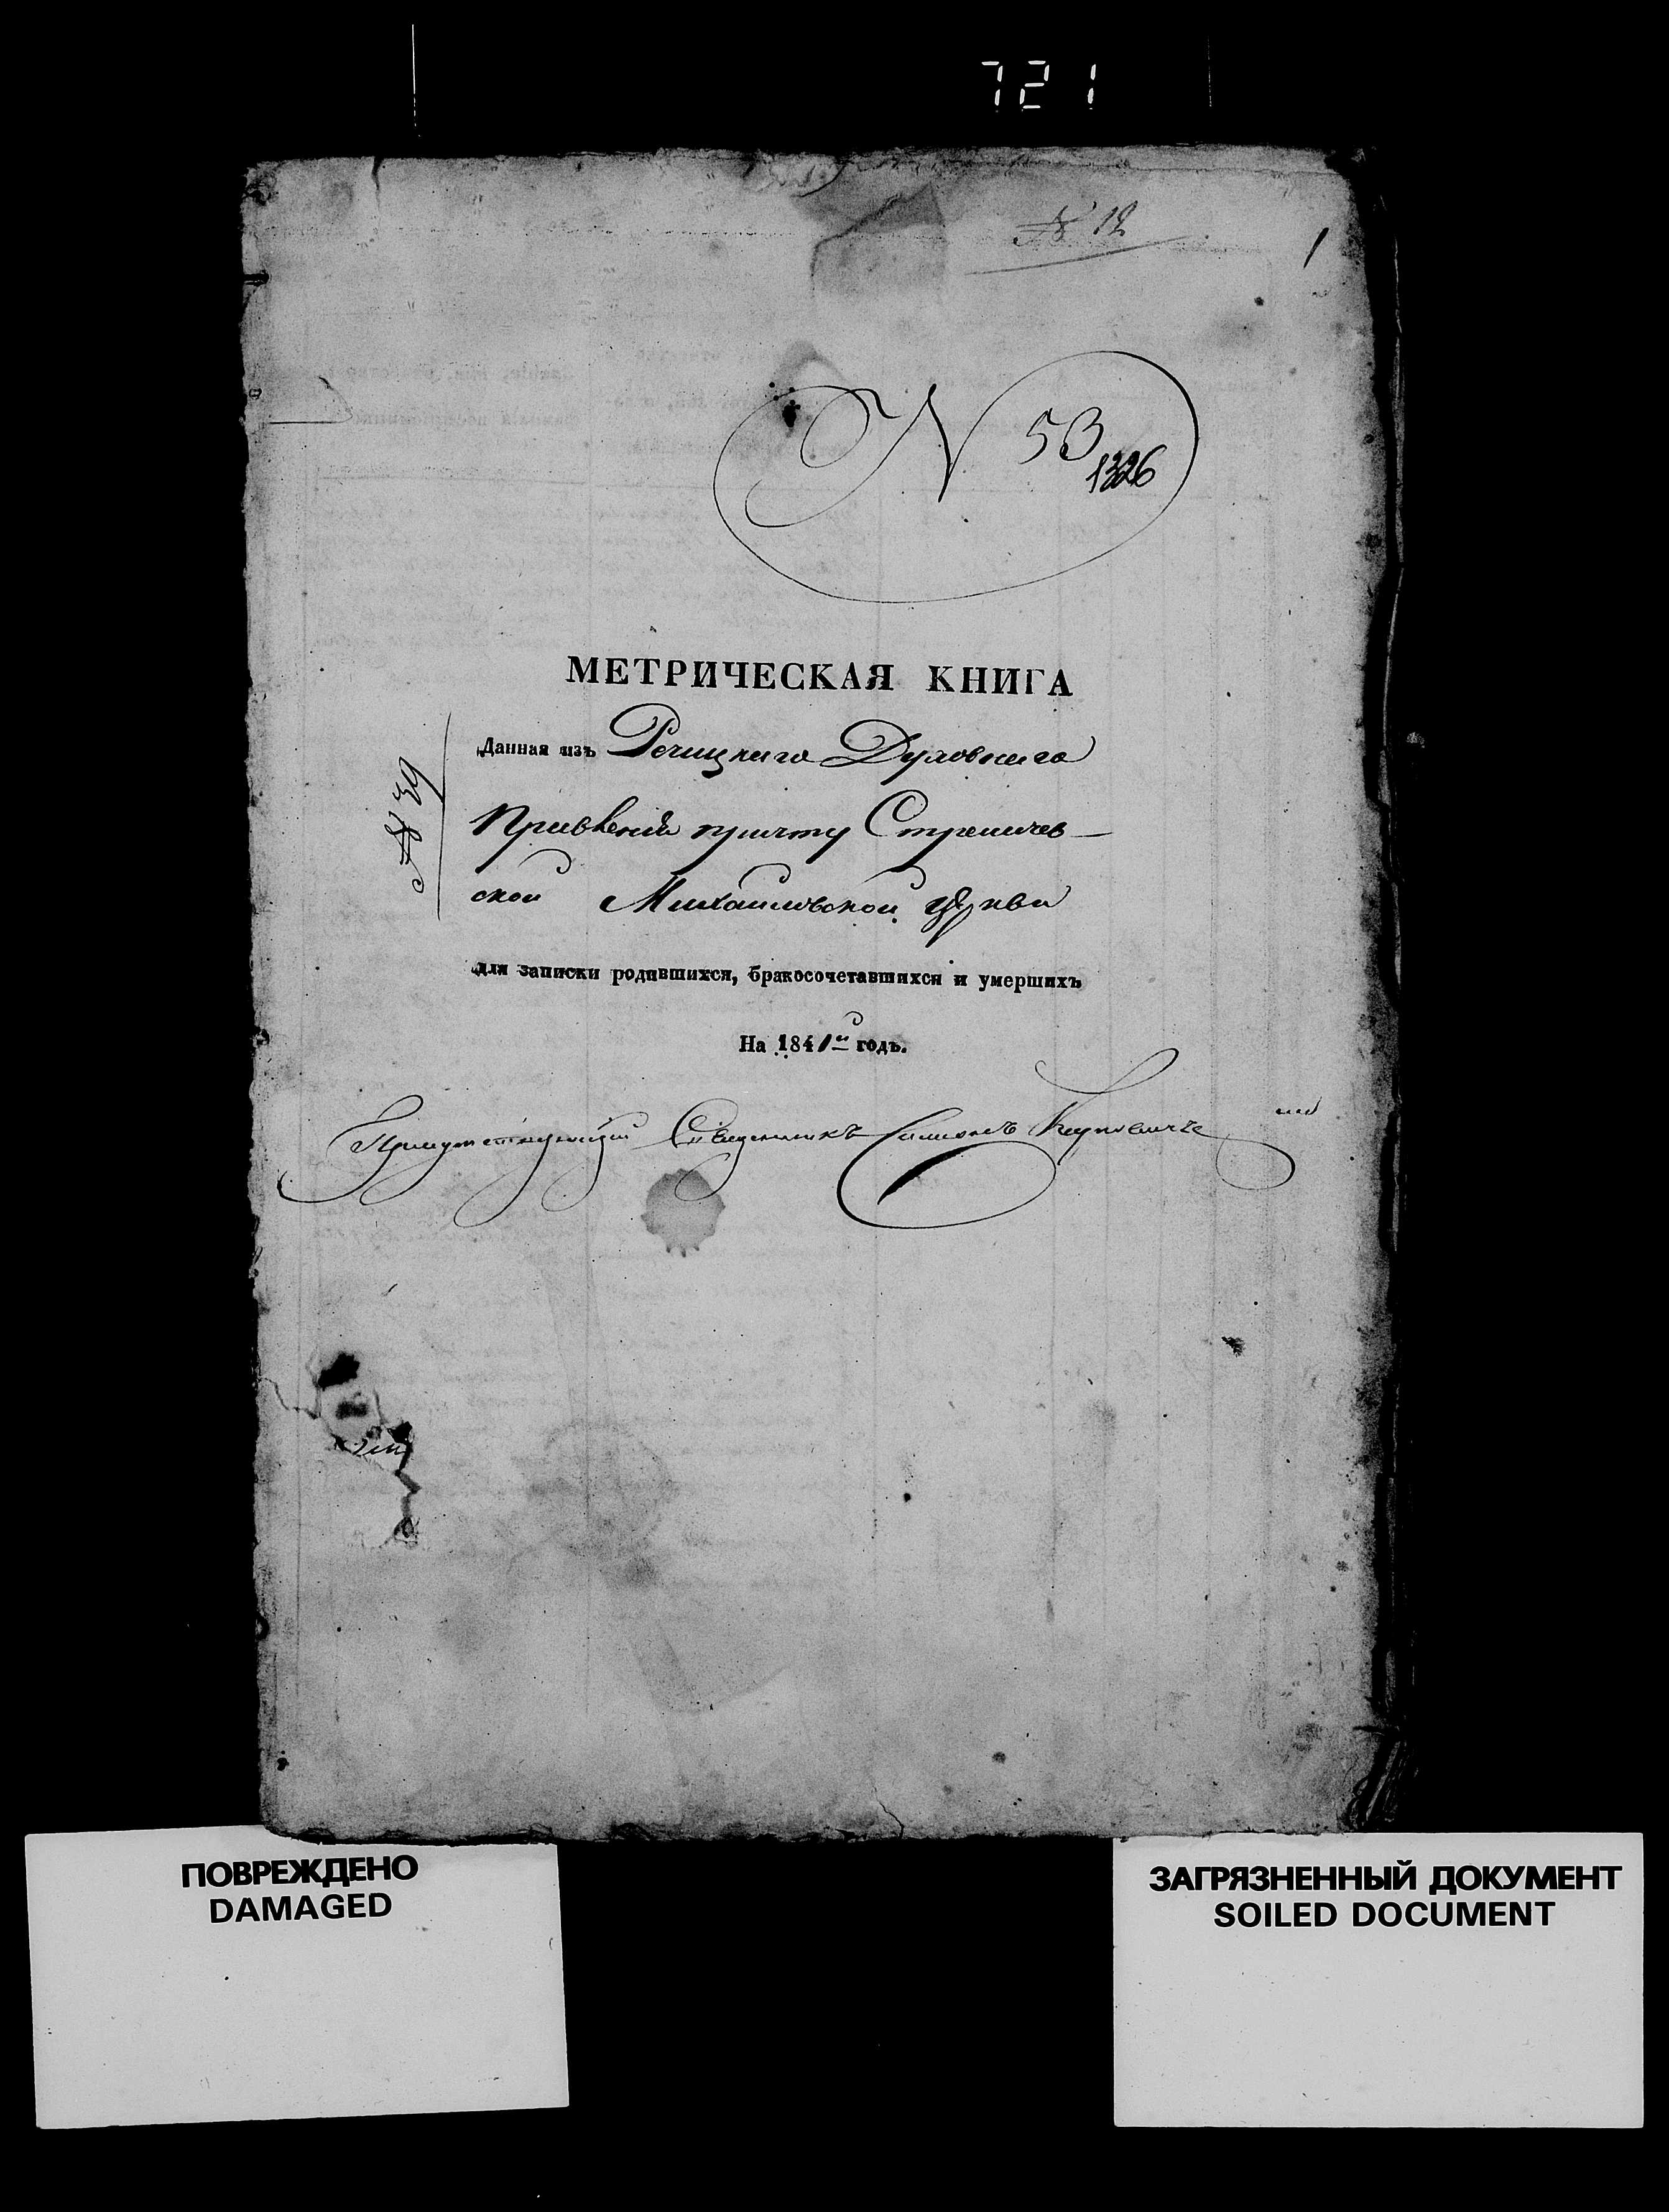 721
№ 12
1
N 53
1326
МЕТРИЧЕСКАЯ КНИГА
Данная изъ Речицкаго Духовнаго
№ 39
Правленія причту Стреличев-
ской Михайловской Церкви
для записки родившихся, бракосочетавшихся и умершихъ
На 1841й годъ.
Присутствующій Священникъ Симонъ
ПОВРЕЖДЕНО
DAMAGED
ЗАГРЯЗНЕННЫЙ ДОКУМЕНТ
SOILED DOCUMENT